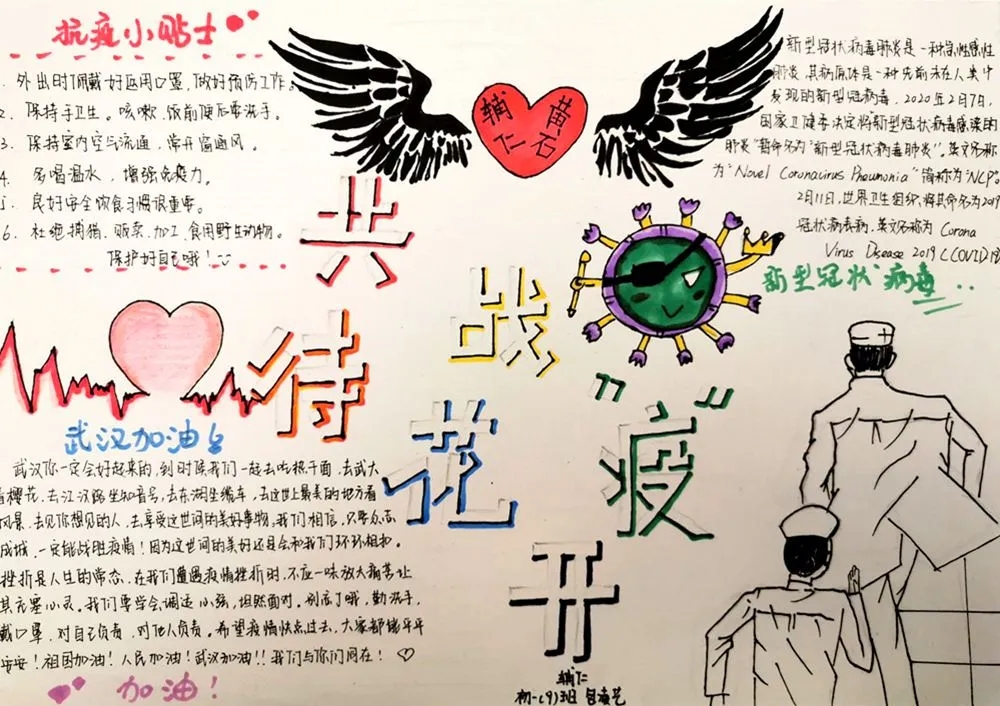 抗疫小贴士
1. 外出时佩戴好医用口罩,做好预防工作。
2. 保持手卫生。咳嗽、饭前便后要洗手。
3. 保持室内空气流通,常开窗通风。
4. 多喝温水,增强免疫力。
5. 良好安全饮食习惯很重要。
6. 杜绝捕猎、贩卖、加工、食用野生动物。
保护好自己哦!
辅仁
黄石
新型冠状病毒肺炎是一种急性感性
肺炎,其病原体是一种先前未在人类中
发现的新型冠状病毒。2020年2月7日,
国家卫健委决定将新型冠状病毒感染的
肺炎"暂命名为"新型冠状病毒肺炎"。英文名称
为"Novel Coronavirus Pneumonia"简称为"NCP"。
2月11日,世界卫生组织将其命名为2019
冠状病毒病,英文名称为 Corona
Virus Disease 2019 (COVID-19
新型冠状病毒..
共
战
"疫"
待
花
开
武汉加油
武汉你一定会好起来的,到时候我们一起去吃热干面,去武大
看樱花,去江汉路坐知音号,去东湖坐缆车,去这世上最美的地方看
风景,去见你想见的人,去享受这世间的美好事物。我们相信,只要众志
成城,一定能战胜疫情!因为这世间的美好还是会和我们环环相扣。
挫折是人生的常态,在我们遭遇疫情挫折时,不应一味放大痛苦让
其充塞心灵。我们要学会调适心弦,坦然面对。别忘了哦,勤洗手,
戴口罩,对自己负责,对他人负责。希望疫情快点过去,大家都能平平
安安!祖国加油!人民加油!武汉加油!!我们与你们同在!
加油!
辅仁
初一(9)班